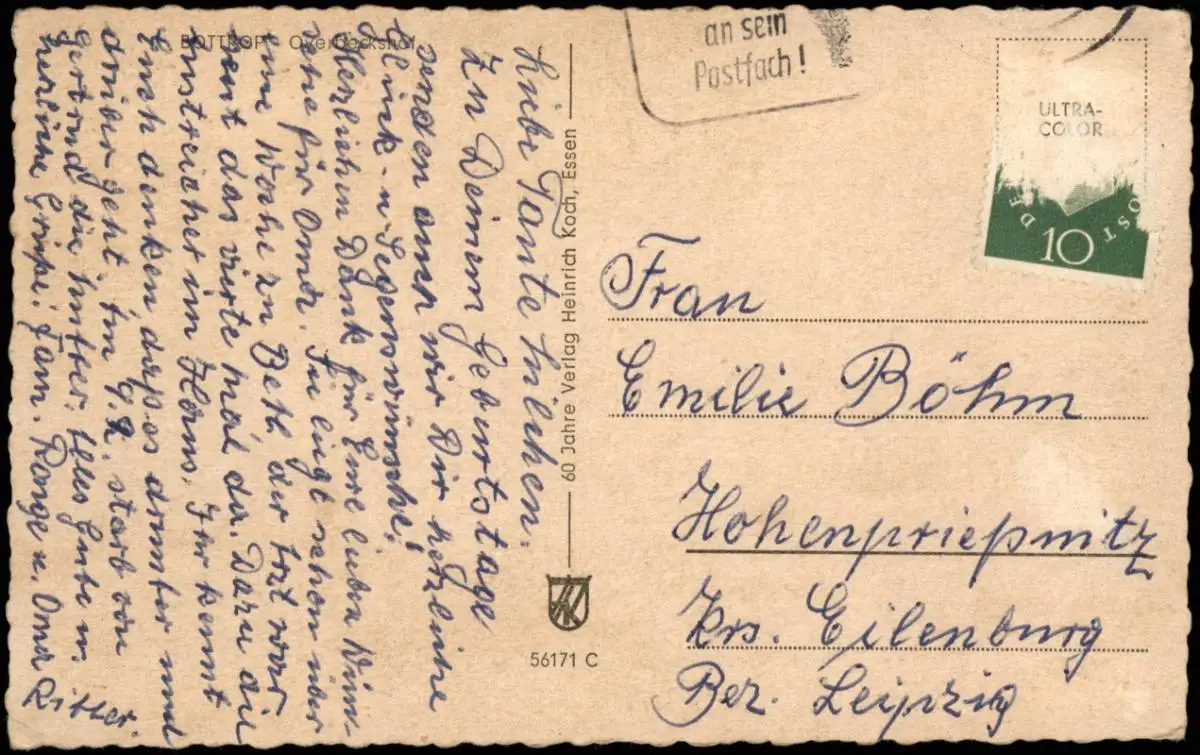 BOTTROP Overbeckshof
Liebe Tante Milchen.
Zu Deinem Geburtstage
senden auch wir Dir herzliche
Glück- u. Segenswünsche!
Herzlichen Dank für Eure lieben Wün-
sche für Oma. Sie liegt schon über
eine Woche zu Bett, der Arzt war
heut das vierte mal da. Dazu die
Anstreicher im Haus. Ihr könnt
Euch denken daß es drunter und
drüber geht. Am 9.2. starb von
Gertrud die Mutter. Alles Gute u.
herzliche Grüße! Fam. Range u. Oma
Ritter.
60 Jahre Verlag Heinrich Koch, Essen
56171 C
an sein
Postfach!
ULTRA-
COLOR
DE
OST
10
Frau
Emilie Böhm
Hohenprießnitz
Krs. Eilenburg
Bez. Leipzig